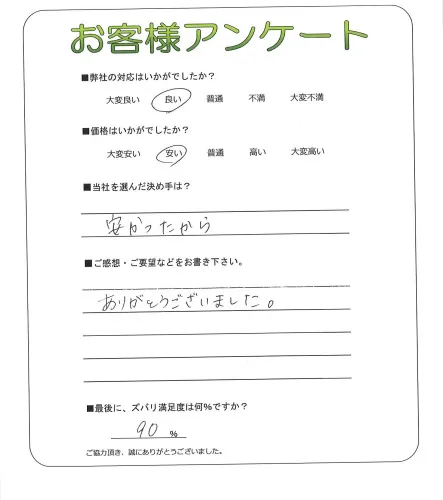 お客様アンケート
■弊社の対応はいかがでしたか？
大変良い 良い 普通 不満 大変不満
■価格はいかがでしたか？
大変安い 安い 普通 高い 大変高い
■当社を選んだ決め手は？
安かったから
■ご感想・ご要望などをお書き下さい。
ありがとうございました。
■最後に、ズバリ満足度は何%ですか？
90 %
ご協力頂き、誠にありがとうございました。